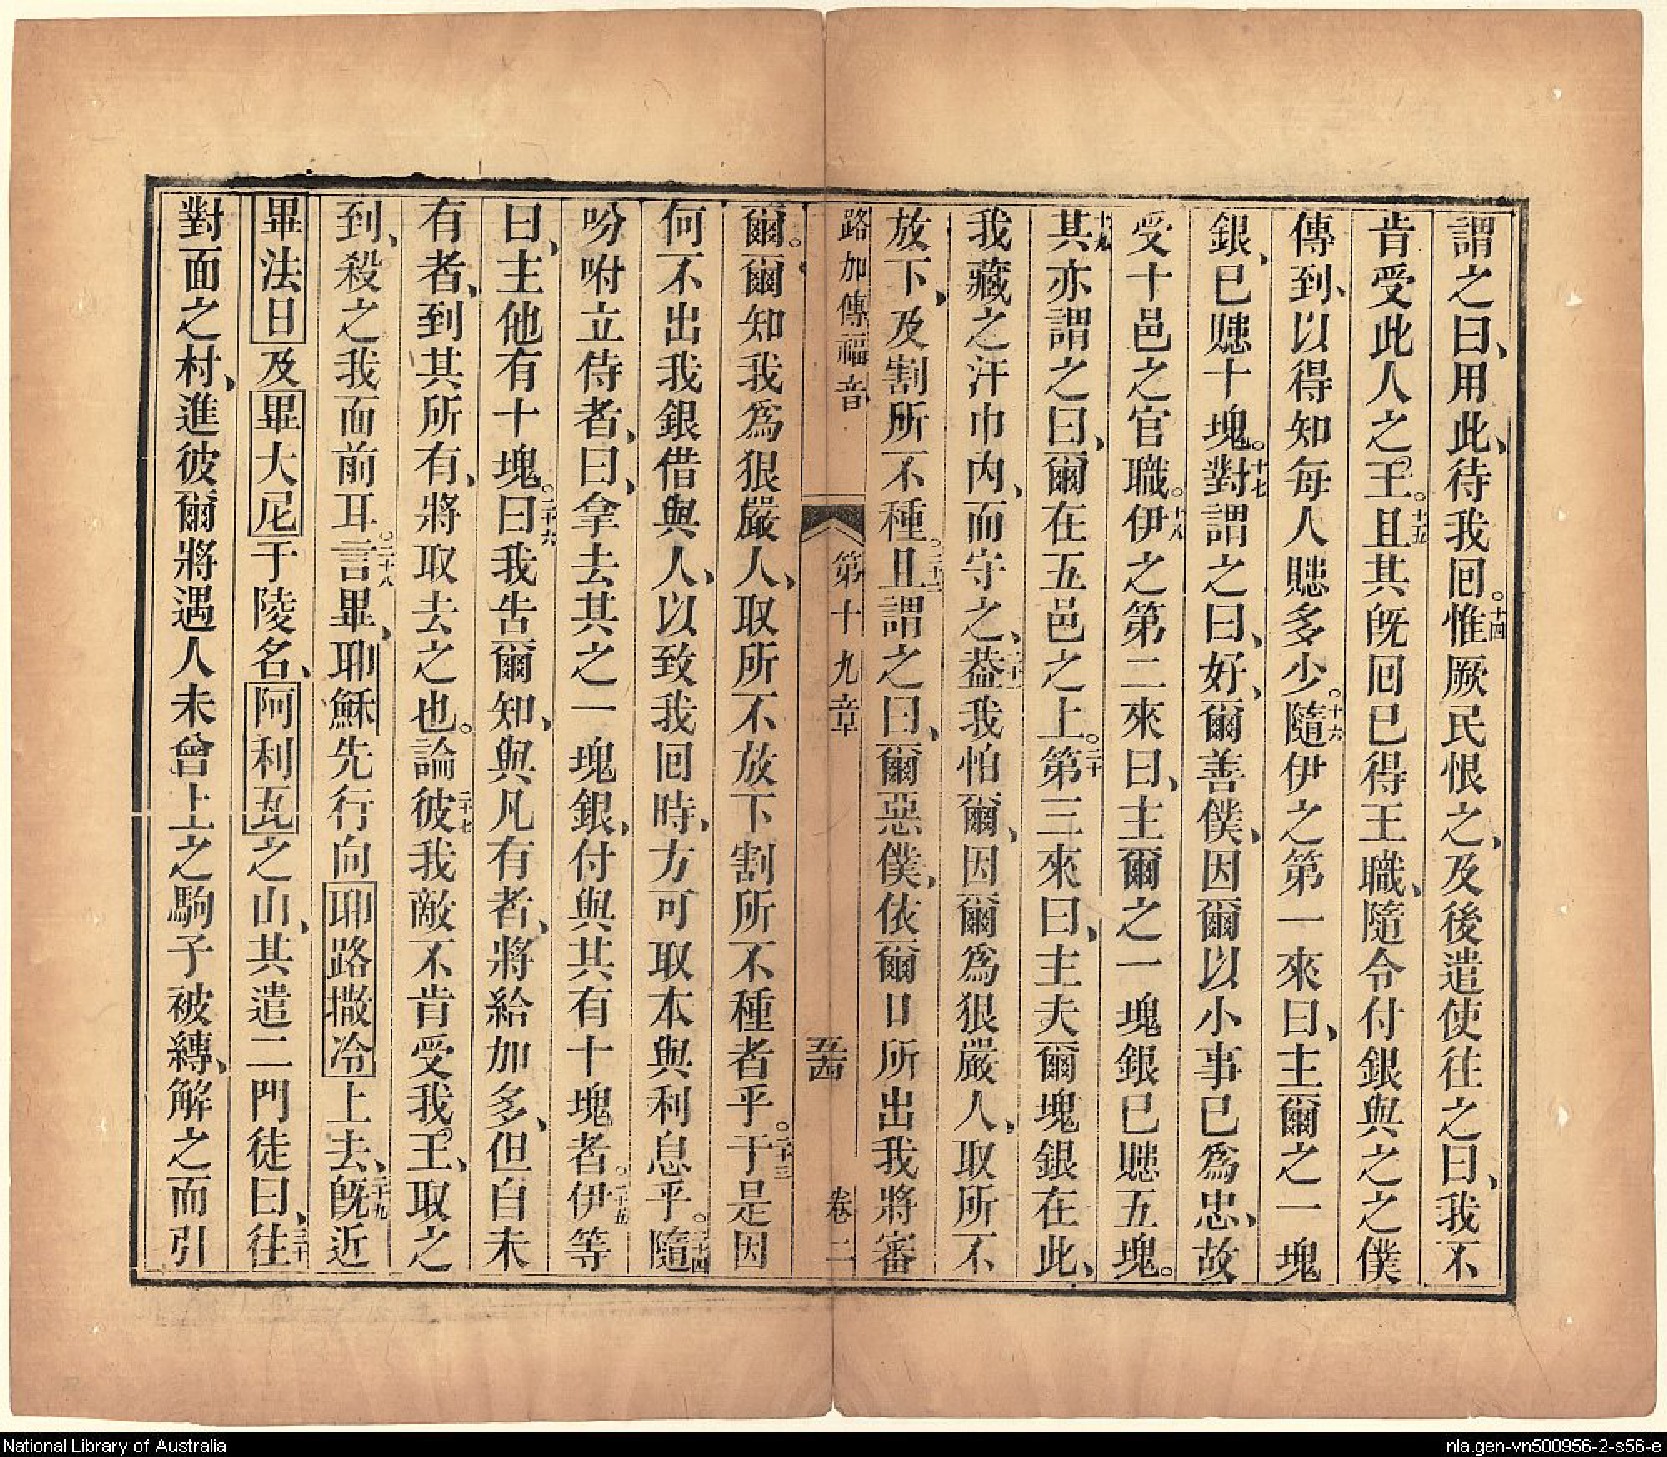 謂之曰、用此、待我回。十四惟厥民恨之、及後遣使往之曰、我不
肯受此人之王。十五且其既回已得王職、隨令付銀與之之僕
傳到、以得知每人賺多少。十六隨伊之第一來曰、主爾之一塊
銀、已賺十塊。十七對謂之曰、好、爾善僕、因爾以小事已為忠、故
受十邑之官職。十八伊之第二來曰、主爾之一塊銀已賺五塊。
十九其亦謂之曰、爾在五邑之上。二十第三來曰、主夫爾塊銀在此、
我藏之汗巾內、而守之、二十一蓋我怕爾、因爾為狠嚴人、取所不
放下、及割所不種。二十二且謂之曰、爾惡僕、依爾口所出我將審
路加傳福音 第十九章 五十四 卷二
爾。爾知我為狠嚴人、取所不放下割所不種者乎。二十三于是因
何不出我銀借與人、以致我回時、方可取本與利息乎。二十四隨
吩咐立侍者、曰、拿去其之一塊銀、付與其有十塊者。二十五伊等
曰、主他有十塊。二十六曰我告爾知、與凡有者、將給加多、但自未
有者、到其所有、將取去之也。二十七論彼我敵不肯受我王、取之
到、殺之我面前耳。二十八言畢、耶穌先行向耶路撒冷上去、二十九既近
畢法日及畢大尼于陵名、阿利瓦之山、其遣二門徒曰、三十往
對面之村、進彼爾將遇人未曾上之駒子被縳、解之而引
National Library of Australia
nla.gen-vn500956-2-s56-e